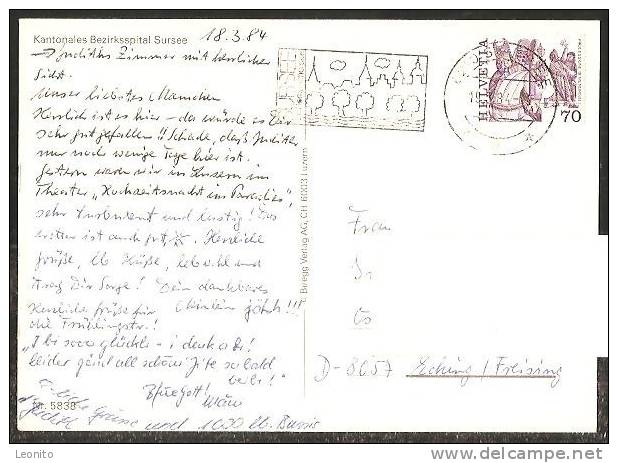 Kantonales Bezirksspital Sursee
18.3.84
→ Judiths Zimmer mit herrlicher
Sicht.
Unser liebstes Mamchen
Herrlich ist es hier – da würde es Dir
sehr gut gefallen!! Schade, daß Judith
nur noch wenige Tage hier ist.
Gestern waren wir in Luzern im
Theater „Hochzeitsnacht im Paradies",
sehr turbulent und lustig! Das
Wetter ist auch gut. Herzliche
Grüße, lb Küße, leb wohl und
trag Dir Sorge! Dein dankbares
Herzliche Grüße für
die Frühlingstr.!
"I bi sooo glückli – i denk a
leider gönd all schöni Zite so bald
Bhüet Gott!
Grüsse und 1000 lb. Bussis
Nr. 5838
Buregg Verlag AG, CH 6003 Luzern
HELVETIA
70
Frau
D-8057 Eching / Freising
Leonito
www.delcampe.net